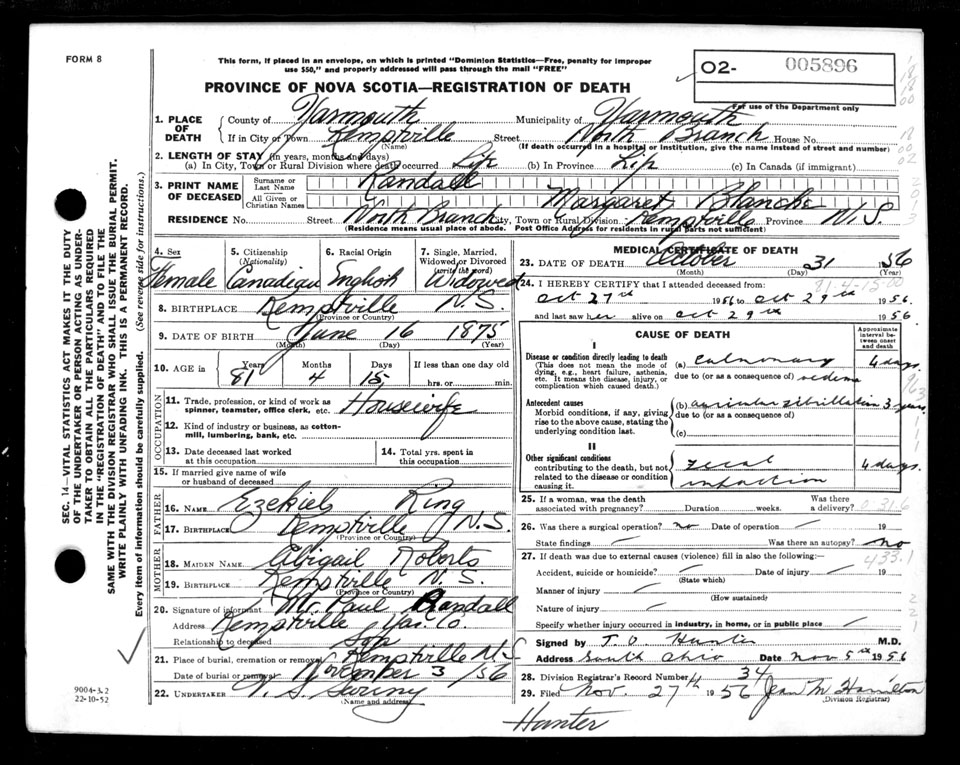 FORM 8
This form, if placed in an envelope, on which is printed "Dominion Statistics—Free, penalty for improper
use $50," and properly addressed will pass through the mail "FREE"
PROVINCE OF NOVA SCOTIA—REGISTRATION OF DEATH
O2- 005896
For use of the Department only
1. PLACE OF DEATH
County of Yarmouth Municipality of Yarmouth
If in City or Town Kemptville Street North Branch House No.
(Name) (If death occurred in a hospital or institution, give the name instead of street and number)
2. LENGTH OF STAY (in years, months and days)
(a) In City, Town or Rural Division where death occurred Life (b) In Province Life (c) In Canada (if immigrant)
3. PRINT NAME OF DECEASED
Surname or Last Name Randall
All Given or Christian Names Margaret Blanche
RESIDENCE No. Street North Branch City, Town or Rural Division Kemptville Province N.S.
(Residence means usual place of abode. Post Office Address for residents in rural parts not sufficient)
4. Sex Female
5. Citizenship (Nationality) Canadian
6. Racial Origin English
7. Single, Married, Widowed or Divorced (write the word) Widowed
8. BIRTHPLACE Kemptville N.S.
(Province or Country)
9. DATE OF BIRTH June 16 1875
(Month) (Day) (Year)
10. AGE in Years Months Days If less than one day old
81 4 15 hrs. or min.
OCCUPATION
11. Trade, profession, or kind of work as
spinner, teamster, office clerk, etc. Housewife
12. Kind of industry or business, as cotton-
mill, lumbering, bank, etc.
13. Date deceased last worked
at this occupation
14. Total yrs. spent in
this occupation
15. If married give name of wife
or husband of deceased
FATHER
16. NAME Ezekiel Ring
17. BIRTHPLACE Kemptville N.S.
(Province or Country)
MOTHER
18. MAIDEN NAME Abigail Roberts
19. BIRTHPLACE Kemptville N.S.
(Province or Country)
20. Signature of informant Mr. Paul Randall
Address Kemptville Yar. Co.
Relationship to deceased Son
21. Place of burial, cremation or removal Kemptville N.S.
Date of burial or removal November 3 /56
22. UNDERTAKER V. S. Sweeny
(Name and address)
MEDICAL CERTIFICATE OF DEATH
23. DATE OF DEATH October 31 1956
(Month) (Day) (Year)
81-4-15-00
24. I HEREBY CERTIFY that I attended deceased from:
Oct 27th 1956 to Oct 29th 1956.
and last saw her alive on Oct 29th 1956.
CAUSE OF DEATH
Approximate interval between onset and death
I
Disease or condition directly leading to death
(This does not mean the mode of
dying, e.g., heart failure, asthenia,
etc. It means the disease, injury, or
complication which caused death.)
(a) Pulmonary 4 days
due to (or as a consequence of) oedema
Antecedent causes
Morbid conditions, if any, giving
rise to the above cause, stating the
underlying condition last.
(b) auricular fibrillation 3 years
due to (or as a consequence of)
(c)
II
Other significant conditions
contributing to the death, but not
related to the disease or condition
causing it.
fecal impaction 4 days.
25. If a woman, was the death
associated with pregnancy? Duration weeks. Was there a delivery?
26. Was there a surgical operation? no Date of operation — 19
State findings — Was there an autopsy? no
27. If death was due to external causes (violence) fill in also the following:
433.1
Accident, suicide or homicide? — Date of injury — 19
(State which)
Manner of injury —
(How sustained)
Nature of injury —
Specify whether injury occurred in industry, in home, or in public place —
Signed by T. O. Hunter M.D.
Address South Ohio Date Nov 5th 1956
28. Division Registrar's Record Number 34
29. Filed Nov. 27th 1956 Jean M Hamilton
(Division Registrar)
Hunter
SEC. 14—VITAL STATISTICS ACT MAKES IT THE DUTY
OF THE UNDERTAKER OR PERSON ACTING AS UNDER-
TAKER TO OBTAIN ALL THE PARTICULARS REQUIRED
IN THE "REGISTRATION OF DEATH" AND TO FILE THE
SAME WITH THE DIVISION REGISTRAR WHO SHALL ISSUE THE BURIAL PERMIT.
WRITE PLAINLY WITH UNFADING INK. THIS IS A PERMANENT RECORD.
Every item of information should be carefully supplied. (See reverse side for instructions.)
9004-3.2
22-10-52